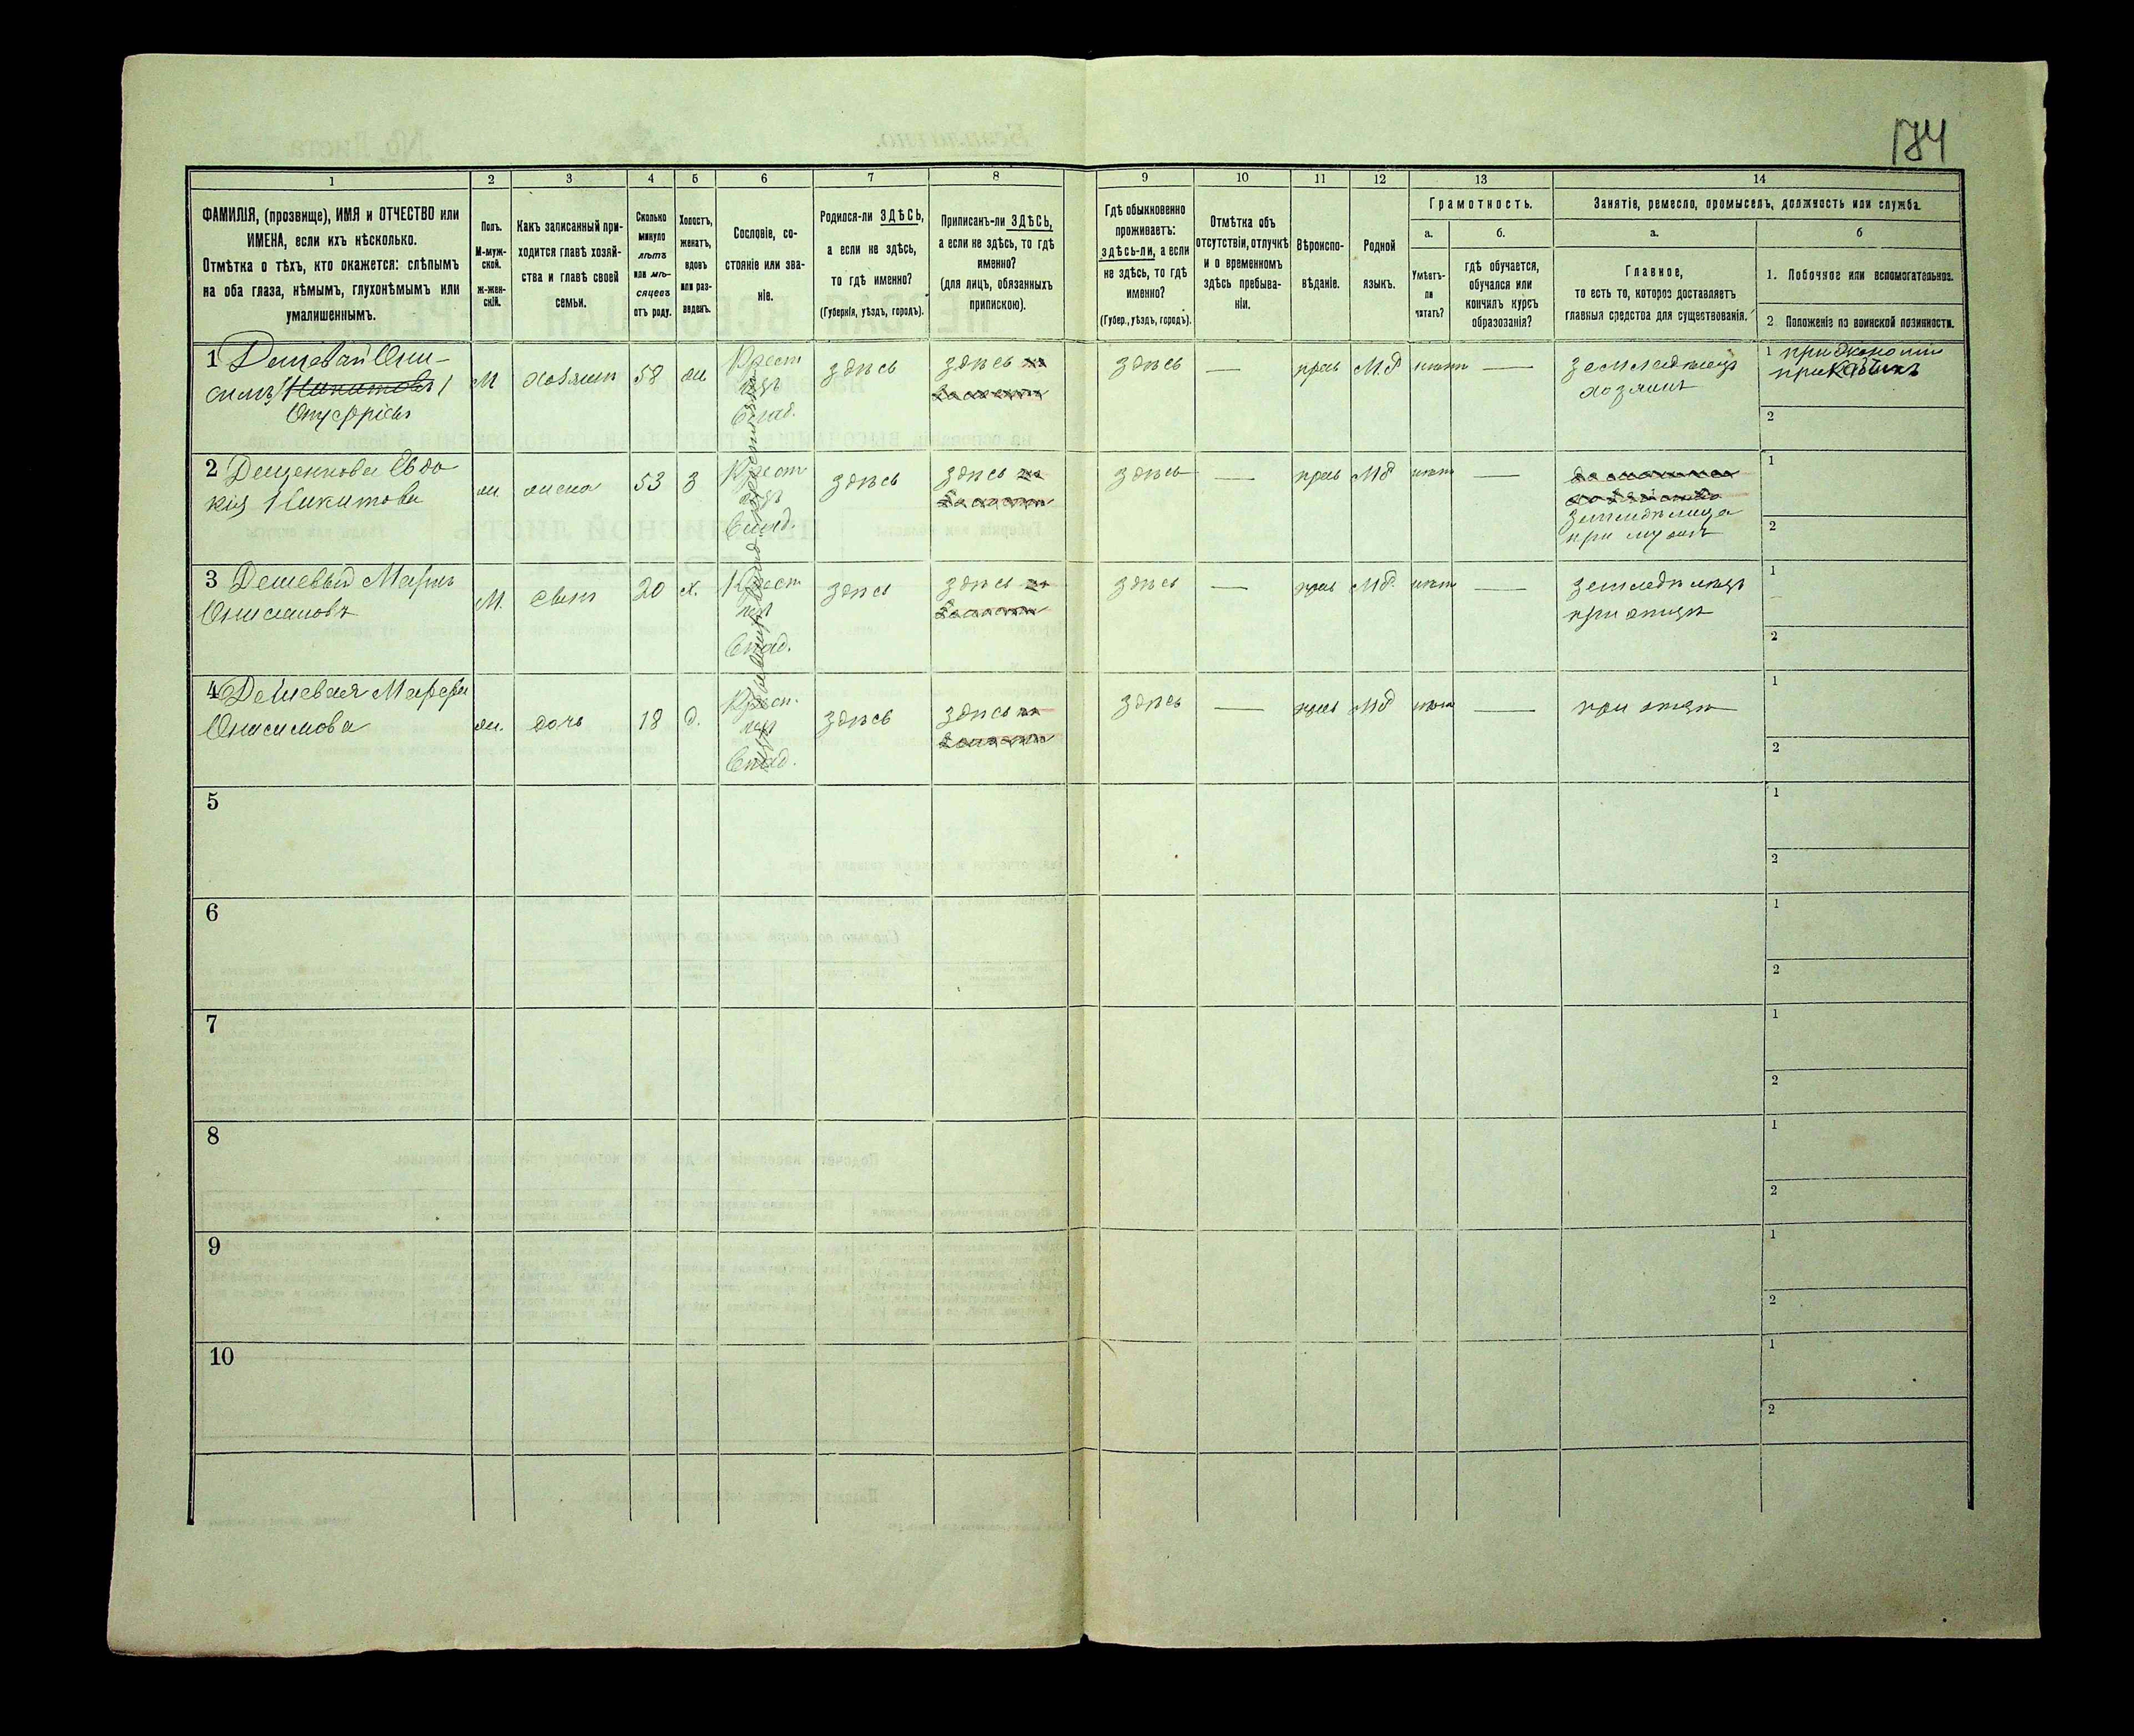 184
1 2 3 4 5 6 7 8 9 10 11 12 13 14
ФАМИЛІЯ, (прозвище), ИМЯ и ОТЧЕСТВО или
ИМЕНА, если ихъ нѣсколько.
Отмѣтка о тѣхъ, кто окажется: слѣпымъ
на оба глаза, нѣмымъ, глухонѣмымъ или
умалишеннымъ.
Полъ.
М-муж-
ской.
ж-жен-
скій.
Какъ записанный при-
ходится главѣ хозяй-
ства и главѣ своей
семьи.
Сколько
минуло
лѣтъ
или мѣ-
сяцевъ
отъ роду.
Холостъ,
женатъ,
вдовъ
или раз-
веденъ.
Сословіе, со-
стояніе или зва-
ніе.
Родился-ли ЗДѢСЬ,
а если не здѣсь,
то гдѣ именно?
(Губернія, уѣздъ, городъ).
Приписанъ-ли ЗДѢСЬ,
а если не здѣсь, то гдѣ
именно?
(для лицъ, обязанныхъ
припискою).
Гдѣ обыкновенно
проживаетъ:
здѣсь-ли, а если
не здѣсь, то гдѣ
именно?
(Губер., уѣздъ, городъ).
Отмѣтка объ
отсутствіи, отлучкѣ
и о временномъ
здѣсь пребыва-
ніи.
Вѣроиспо-
вѣданіе.
Родной
языкъ.
Грамотность.
а.
Умѣетъ-
ли
читать?
б.
гдѣ обучается,
обучался или
кончилъ курсъ
образованія?
Занятіе, ремесло, промыселъ, должность или служба.
а.
Главное,
то есть то, которое доставляетъ
главныя средства для существованія.
б
1. Побочное или вспомогательное.
2 Положеніе по воинской повинности.
1 Дешевый Они-
симъ Никитовъ
Онуфріевъ
М хозяинъ 58 ж Крест здѣсь здѣсь здѣсь — прав Мд нѣтъ — земледѣлецъ
хозяинъ
1
2
2 Дешенкова Евдо
кія Никитова
ж жена 53 з Крест здѣсь здѣсь здѣсь — прав Мд нѣтъ —
при мужѣ
1
2
3 Дешевый Маркъ
Онисимовъ
М. сынъ 20 х. Крест здѣсь здѣсь здѣсь — прав Мд. нѣтъ — земледѣлецъ
при отцѣ
1
2
4 Дешевая Марфа
Онисимова
ж. дочь 18 д. Крест. здѣсь здѣсь здѣсь — прав Мд нѣтъ — при отцѣ
1
2
5
1
2
6
1
2
7
1
2
8
1
2
9
1
2
10
1
2